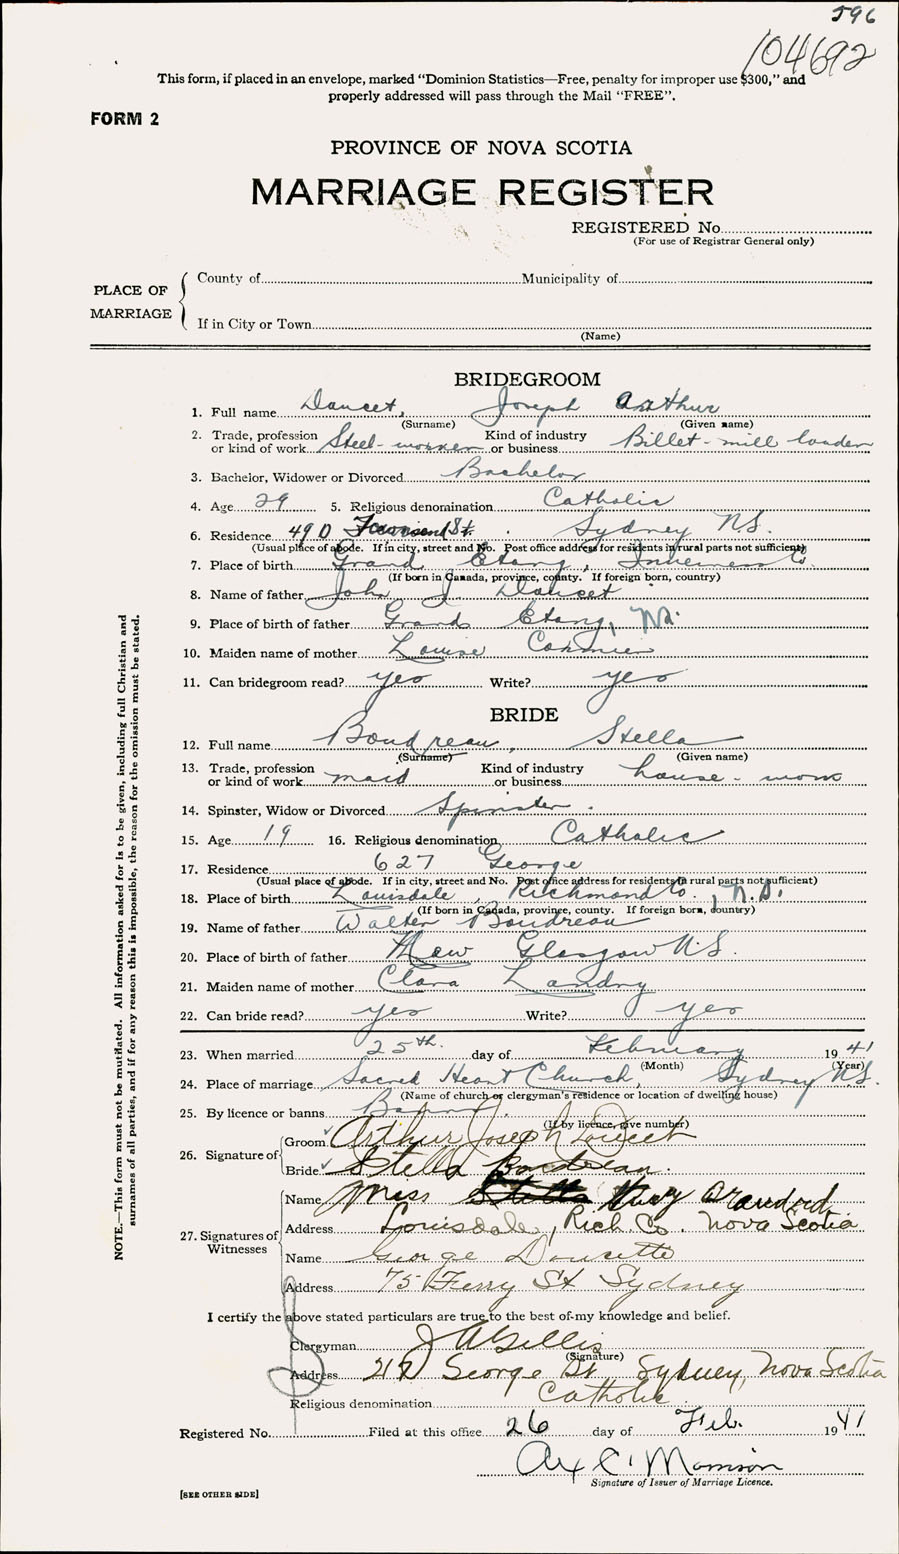 596
104692
This form, if placed in an envelope, marked "Dominion Statistics—Free, penalty for improper use $300," and
properly addressed will pass through the Mail "FREE".
FORM 2
PROVINCE OF NOVA SCOTIA
MARRIAGE REGISTER
REGISTERED No.
(For use of Registrar General only)
PLACE OF MARRIAGE
County of Municipality of
If in City or Town
(Name)
BRIDEGROOM
1. Full name Doucet, Joseph Arthur
(Surname) (Given name)
2. Trade, profession or kind of work Steel-worker Kind of industry or business Billet-mill loader
3. Bachelor, Widower or Divorced Bachelor
4. Age 29 5. Religious denomination Catholic
6. Residence 49 D Townsend St. Sydney N.S.
(Usual place of abode. If in city, street and No. Post office address for residents in rural parts not sufficient)
7. Place of birth Grand Etang, Inverness Co.
(If born in Canada, province, county. If foreign born, country)
8. Name of father John J Doucet
9. Place of birth of father Grand Etang, N.S.
10. Maiden name of mother Louise Cormier
11. Can bridegroom read? yes Write? yes
BRIDE
12. Full name Boudreau, Stella
(Surname) (Given name)
13. Trade, profession or kind of work maid Kind of industry or business house-work
14. Spinster, Widow or Divorced Spinster.
15. Age 19 16. Religious denomination Catholic
17. Residence 627 George
(Usual place of abode. If in city, street and No. Post office address for residents in rural parts not sufficient)
18. Place of birth Louisdale, Richmond Co., N.S.
(If born in Canada, province, county. If foreign born, country)
19. Name of father Walter Boudreau
20. Place of birth of father New Glasgow N.S.
21. Maiden name of mother Clara Landry
22. Can bride read? yes Write? yes
23. When married 25th. day of February 1941
(Month) (Year)
24. Place of marriage Sacred Heart Church, Sydney N.S.
(Name of church or clergyman's residence or location of dwelling house)
25. By licence or banns Banns
(If by licence, give number)
26. Signature of
Groom Arthur Joseph Doucet
Bride Stella Boudreau.
27. Signatures of Witnesses
Name Miss Mary
Address Louisdale, Rich Co. Nova Scotia
Name George Doucette
Address 75 Ferry St Sydney
I certify the above stated particulars are true to the best of my knowledge and belief.
Clergyman J A Gillis
(Signature)
Address George St. Sydney, Nova Scotia
Religious denomination Catholic
Registered No. Filed at this office 26 day of Feb. 1941
Morrison
Signature of Issuer of Marriage Licence.
[SEE OTHER SIDE]
NOTE.—This form must not be mutilated. All information asked for is to be given, including full Christian and
surnames of all parties, and if for any reason this is impossible, the reason for the omission must be stated.